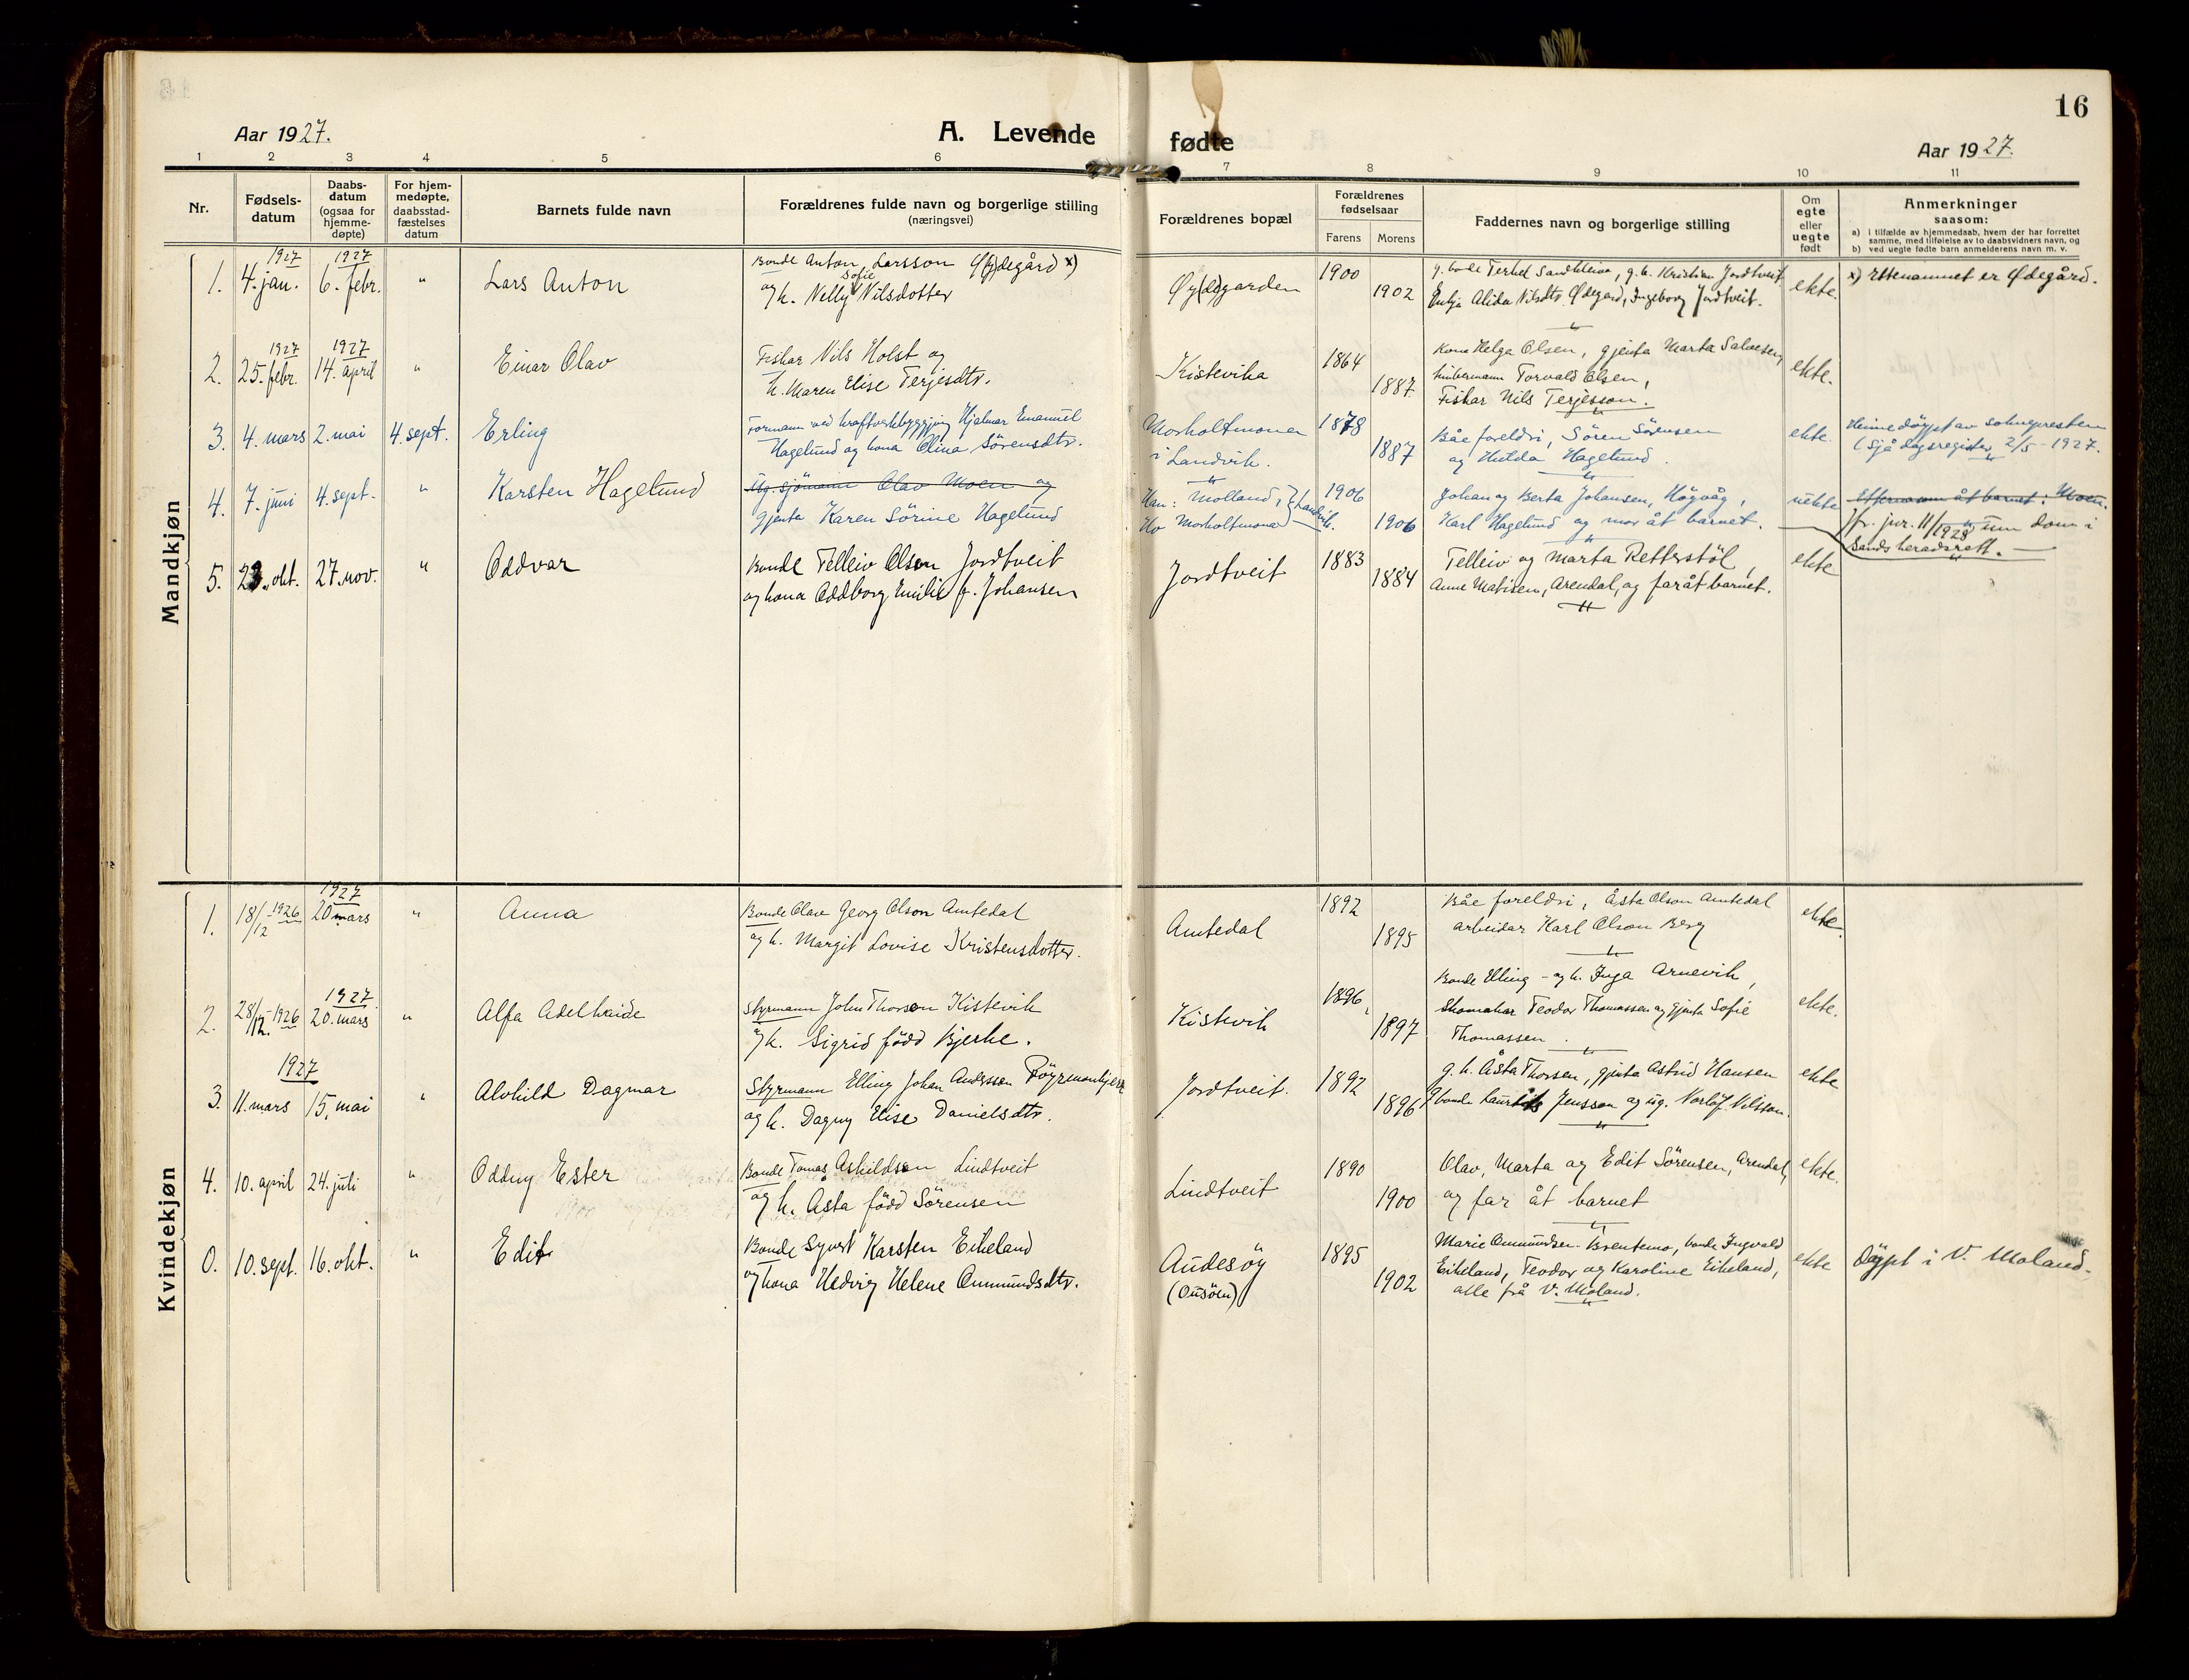 16
Aar 1927.
A. Levende fødte
Aar 1927.
1 2 3 4 5 6 7 8 9 10 11
Nr.
Fødsels-
datum
Daabs-
datum
(ogsaa for
hjemme-
døpte)
For hjem-
medøpte,
daabsstad-
fæstelses
datum
Barnets fulde navn
Forældrenes fulde navn og borgerlige stilling
(næringsvei)
Forældrenes bopæl
Forældrenes
fødselsaar
Farens Morens
Faddernes navn og borgerlige stilling
Om
egte
eller
uegte
født
Anmerkninger
saasom:
a) i tilfælde av hjemmedaab, hvem der har forrettet
samme, med tilføielse av to daabsvidners navn, og
b) ved uegte fødte barn anmelderens navn m. v.
Mandkjøn
1927 1927
1. 4. jan. 6. febr. " Lars Anton
Bonde Anton Larsson Ø(y)degård x)
og k. Nelly Sofie Nilsdotter
Øy(de)garden
1900
1902
g. bonde Terkel Sandkleiva, g. k. Kristine Jordtveit
Enkja Alida Nilsdtr. Ødegard, Ingeborg Jordtveit.
ekte.
x) Ettenamnet er Ødegård.
1927 1927
2. 25. febr. 14. april " Einar Olav
Fiskar Nils Holst og
k. Maren Elise Terjesdtr.
Kistevika
1864
1887
Kona Helga Olsen, gjenta Marta Salvesen,
Torvald Olsen,
Fiskar Nils Terjesson.
ekte.
3. 4. mars 2. mai 4. sept. Erling
Formann ved kraftverkbyggjing Hjalmar Emanuel
Hagelund og kona Olina Sørensdtr.
Morholtmonen
i Landvik.
1878
1887
Båe foreldri, Søren Sørensen
og Hulda Hagelund.
ekte
Heimedøypt av soknepresten
(Sjå dagsregister 2/5 - 1927.
4. 7. juni 4. sept. " Karsten Hagelund
Ug. sjömann Olav Moen og
gjenta Karen Sörine Hagelund
Han: Molland, } Landvik.
Ho Morholtmona
1906
1906
Johan og Berta Johansen, Högvåg,
Karl Hagelund og mor åt barnet.
uekte
Etternamn åt barnet: Moen.
Jfr. jur. 11/1928 um dom i
Sands heradsrett.
5. 23. okt. 27. nov. " Oddvar
Bonde Telleiv Olsen Jordtveit
og kona Oddborg Emilie f. Johansen
Jordtveit
1883
1884
Telleiv og Marta Retterstöl,
Anne Matisen, Arendal, og far åt barnet.
ekte
Kvindekjøn
1927
1. 18/12 1926 20 mars " Anna
Bonde Olav Georg Olson Amtedal
og k. Margit Lovise Kristensdotter.
Amtedal
1892
1895
Båe foreldri, Åsta Olson Amtedal
arbeidar Karl Olson Berg
ekte.
1927
2. 28/12. 1926 20. mars " Alfa Adelheide
Styrmann John Thorsen Kistevik
og k. Sigrid född Bjerke.
Kistevik
1896
1897
Bonde Elling - og k. Inga Arnevik,
Skomakar Teodor Thomassen og gjenta Sofie
Thomassen.
ekte.
1927
3. 11. mars 15. mai " Alvhild Dagmar
Styrmann Elling Johan Anderssen
og k. Dagny Elise Danielsdtr.
Jordtveit.
1892
1896
g. k. Åsta Thorsen, gjenta Astrid Hansen
bonde Laurits Jensson og ug. Norlöf Nilsson.
ekte
4. 10. april 24. juli " Oddny Ester
Bonde Tomas Askildsen Lindtveit
og k. Åsta född Sörensen
Lindtveit
1890
1900
Olav, Marta og Edit Sörensen, Arendal,
og far åt barnet
ekte.
0. 10. sept. 16. okt. " Edit
Bonde Syvert Karsten Eikeland
og kona Hedvig Helene Ommundsdtr.
Audesöy
(Ousöen)
1895
1902
Marie Ommundsen Brentemo, bonde Ingvald
Eikeland, Teodor og Karoline Eikeland,
alle frå V. Moland.
ekte
Döypt i V. Moland.